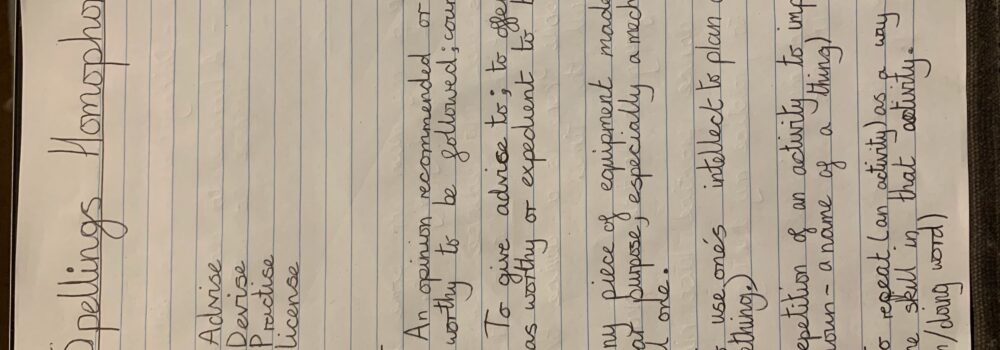 Spellings Homopho
Advise
Devise
Practise
License
An opinion recommended or
worthy to be followed; coun
To give advise to; to offe
as worthy or expedient to
ny piece of equipment made
purpose, especially a mech
one.
use one's intellect to plan
ething)
epetition of an activity to imp
noun - a name of a thing)
o repeat (an activity) as a way
e skill in that activity.
/doing word)